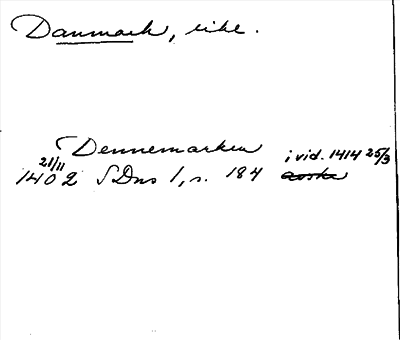 Danmark, rike.
Dennemarken i vid. 1414 25/3
21/11
1402 SDns 1, s. 184 avskr